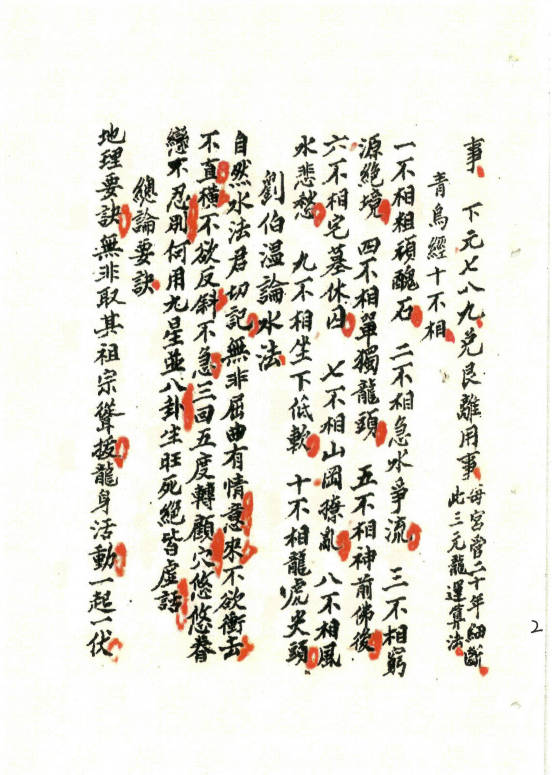 事 下元七八九兌艮離用事 每宮管二十年細斷
此三元龍運算法
青烏經十不相
一不相粗頑醜石 二不相急水爭流 三不相窮
源絕境 四不相單獨龍頭 五不相神前佛後
六不相宅墓休囚 七不相山岡撩亂 八不相風
水悲愁 九不相坐下低軟 十不相龍虎尖頭
劉伯溫論水法
自然水法君切記無非屈曲有情意來不欲衝去
不直穐不欲反斜不急三回五度轉顧穴悠悠眷
戀不忍別何用九星並八卦生旺死絕皆虛話
總論要訣
地理要訣無非取其祖宗聳拔龍身活動一起一伏
2